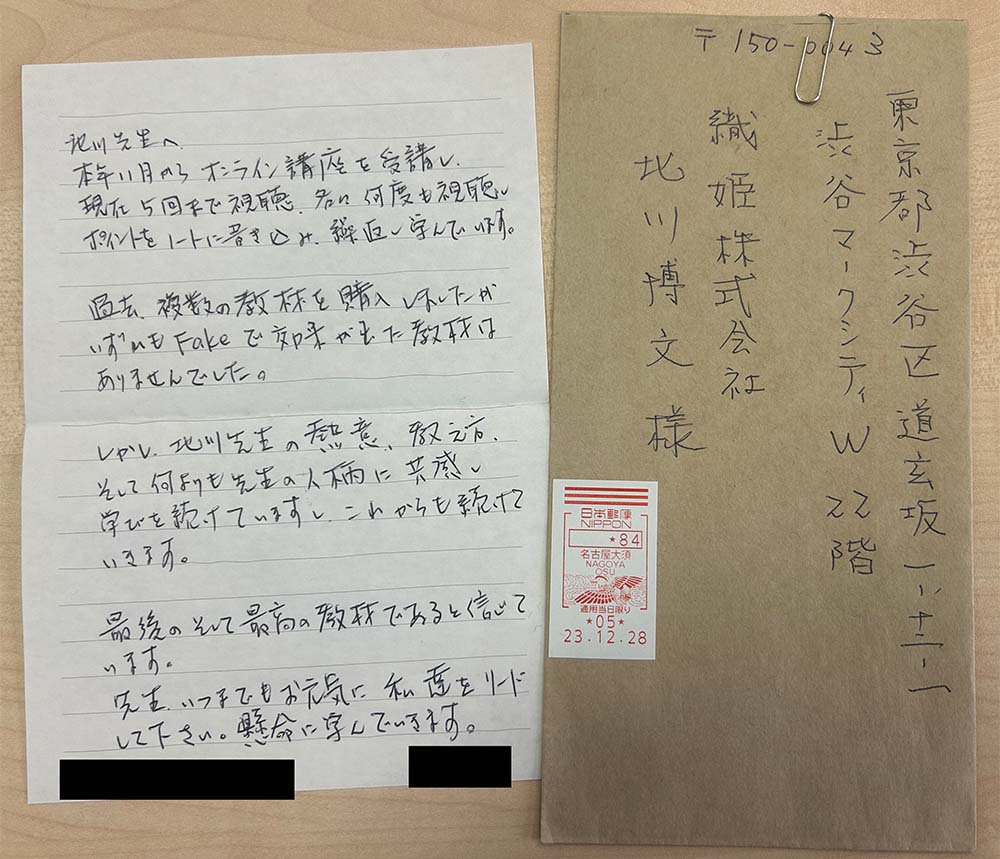 北川先生へ
本年11月からオンライン講座を受講し、
現在5回まで視聴、各に何度も視聴し
ポイントをノートに書き込み、繰返し学んでいます。
過去、複数の教材を購入しましたが
いずれもFakeで効果が出た教材は
ありませんでした。
しかし、北川先生の熱意、教え方、
そして何よりも先生の人柄に共感し
学びを続けていますし、これからも続けて
いきます。
最後のそして最高の教材であると信じて
います。
先生、いつまでもお元気に私達をリード
して下さい。懸命に学んでいきます。
〒150-0043
東京都渋谷区道玄坂一-十二-一
渋谷マークシティW22階
織姫株式会社
北川博文様
日本郵便
NIPPON
★84
名古屋大須
NAGOYA
OSU
適用当日限り
★05★
23.12.28